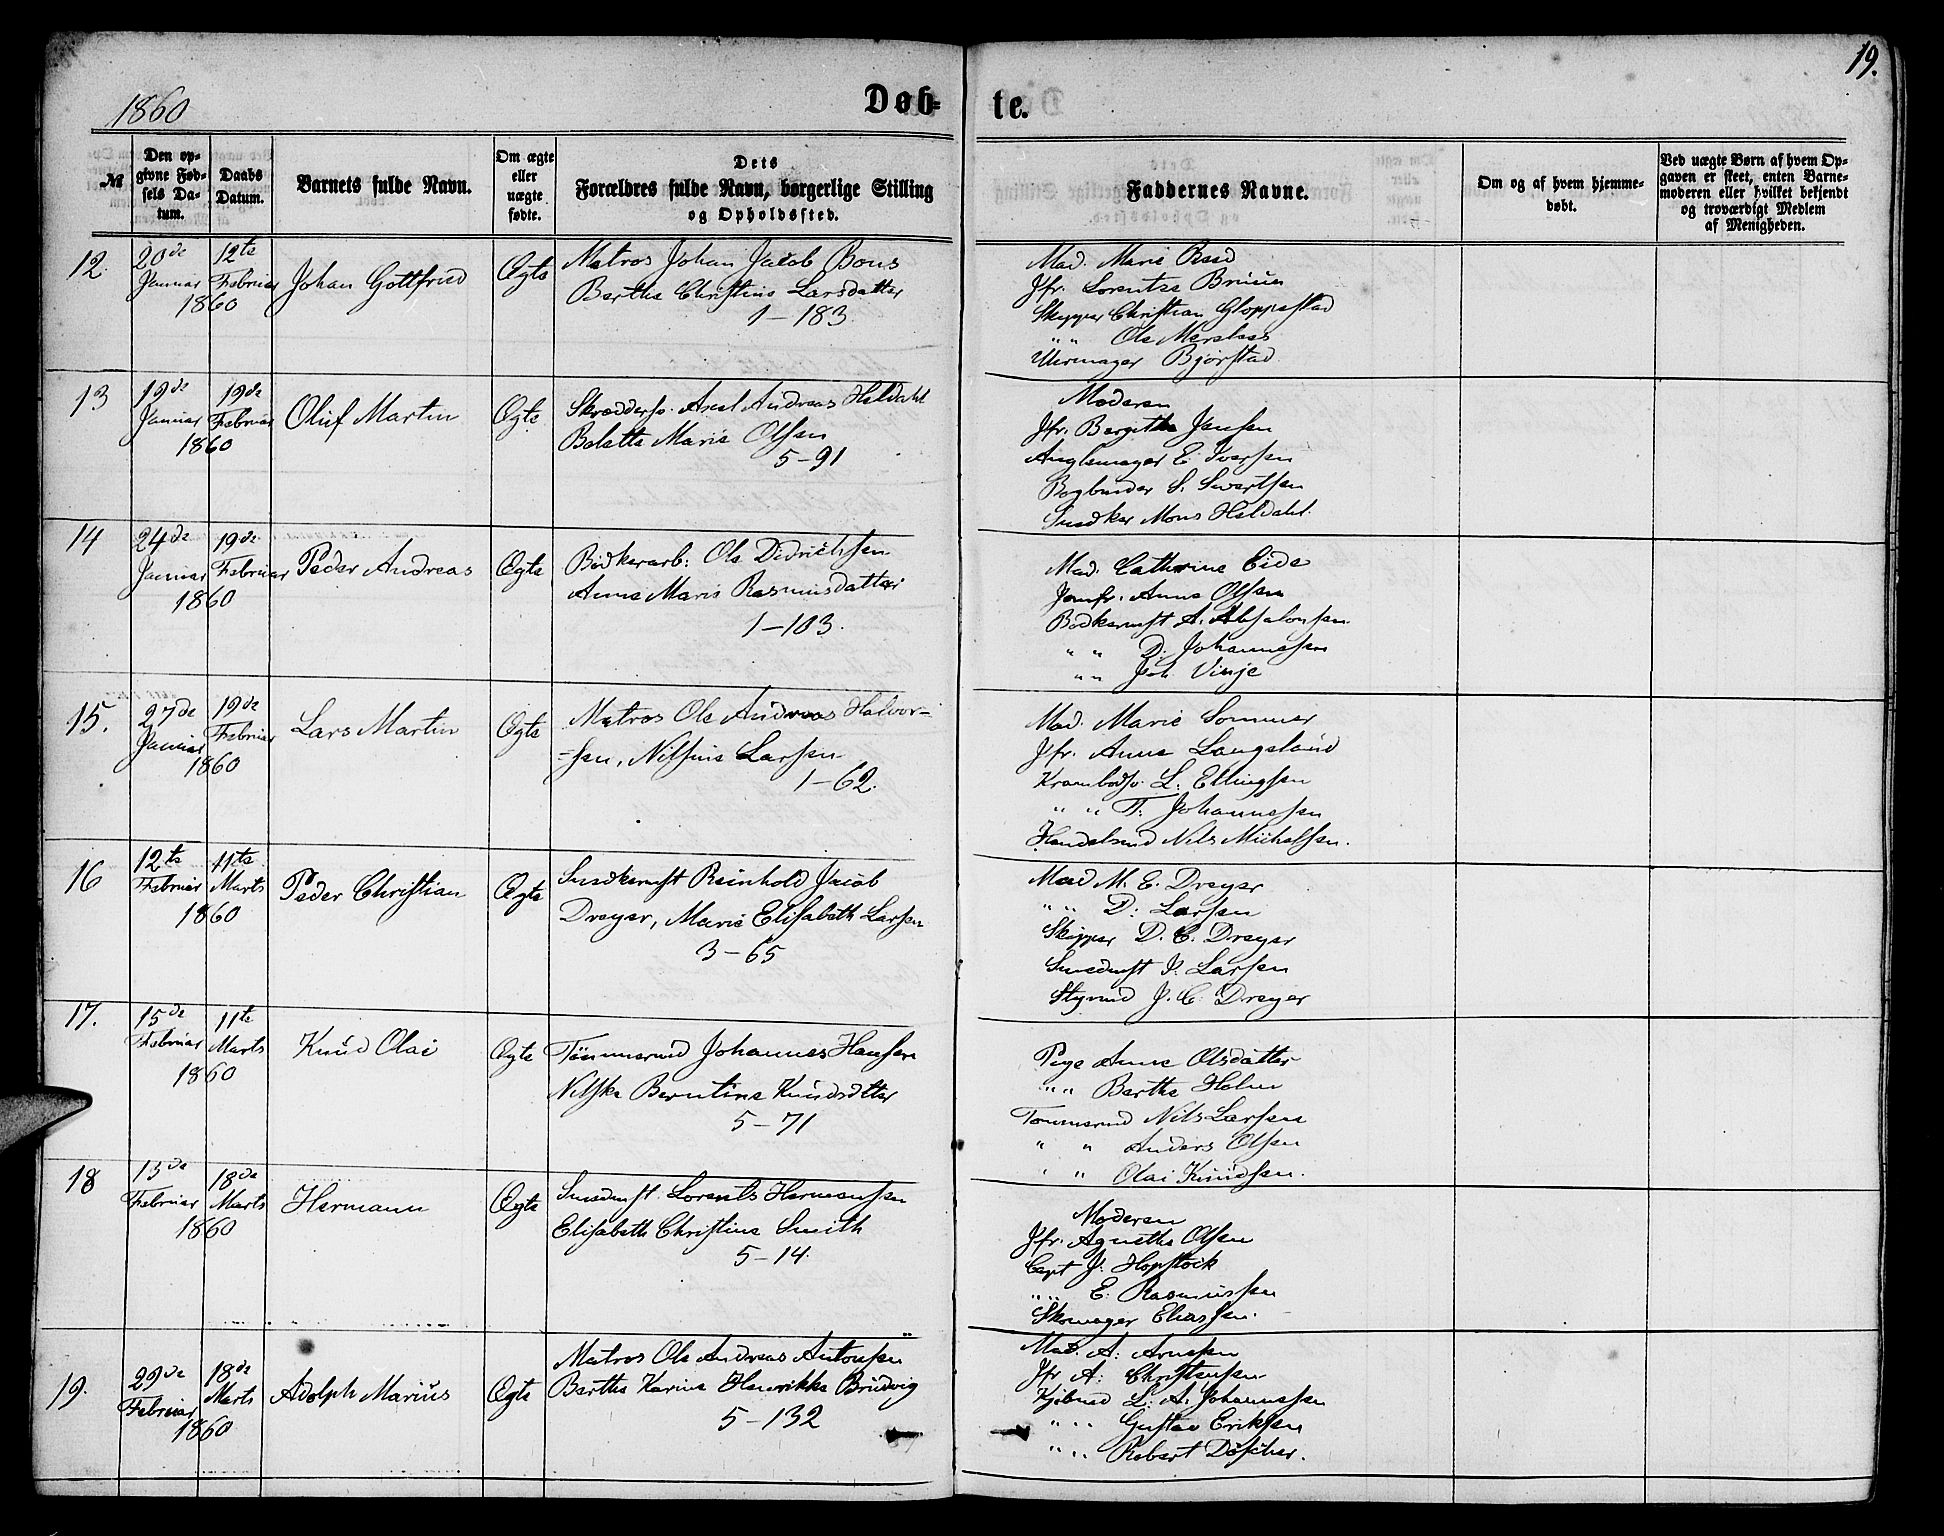 19.
1860
Døb-te.
№
Den opgivne Fødsels Datum.
Daabs Datum.
Barnets fulde Navn.
Om ægte eller uægte fødte.
Dets Forældres fulde Navn, borgerlige Stilling og Opholdssted.
Faddernes Navne.
Om og af hvem hjemmedøbt.
Ved uægte Børn af hvem Opgaven er skeet, enten Barnemoderen eller hvilket bekjendt og troværdigt Medlem af Menigheden.
12.
20de Januar 1860
12te Februar
Johan Gottfried
Ægte
Matros Johan Jacob Bous
Berthe Christine Larsdatter
1-183
Mad. Marie
Jfr. Lorentze Bruun
Skipper Christian Gloppestad
" " Ole
Uhrmager Bjørstad
13
19de Januar 1860
19de Februar
Oluf Martin
Ægte
Skræddersv. Axel Andreas Heldahl
Bolette Marie Olsen
5-91
Moderen
Jfr. Bergithe Jansen
E. Iversen
Bogbinder S. Swertsen
Snedker Mons Heldahl
14
24de Januar 1860
19de Februar
Peder Andreas
Ægte
Bødkerarb: Ole Didrichsen
Anne Marie Rasmusdatter
1-103.
Mad. Cathrine Eide
Jomfr. Anne Olsen
Bødkermst A. Absalonsen
" " D. Johannessen
" " Joh. Vinje
15.
27de Januar 1860
19de Februar
Lars Martin
Ægte
Matros Ole Andreas Halvor-
-sen, Nilsine Larsen
1-62.
Mad. Marie Sommer
Jfr. Anne Langeland
Krambodsv. L. Ellingsen
" " T. Johannessen
Handelsmd Nils Michelsen.
16
12te Februar 1860
11te Marts
Peder Christian
Ægte
Snedkermst Reinhold Jacob
Dreyer, Marie Elisabeth Larsen
3-65
Mad M. E. Dreyer
" " D: Larsen
Skipper D. C. Dreyer
Snedmst P. Larsen
Styrmd J. C. Dreyer
17.
15de Februar 1860
11te Marts
Knud Olai
Ægte
Tømmermd Johannes Hansen
Nilske Berntine Knudsdtter
5-71
Pige Anne Olsdatter
" " Berthe Holm
Tømmermd Nils Larsen
" " Anders Olsen
" " Olai Knudsen.
18
13de Februar 1860
18de Marts
Hermann
Ægte
Snedmst. Lorents Hermansen
Elisabeth Christine Smith
5-14.
Moderen
Jfr. Agnethe Olsen
Capt J. Hopstock
" " E. Rasmussen
Skomager Eliassen.
19.
29de Februar 1860
18de Marts
Adolph Marius
Ægte
Matros Ole Andreas Antonsen
Berthe Karine Henrikke Brudvig
5-132
Mad. A: Arnesen
Jfr A: Christensen
Kjøbmd L. A. Johannessen
" " Gustav Eriksen
" " Robert Döscher.